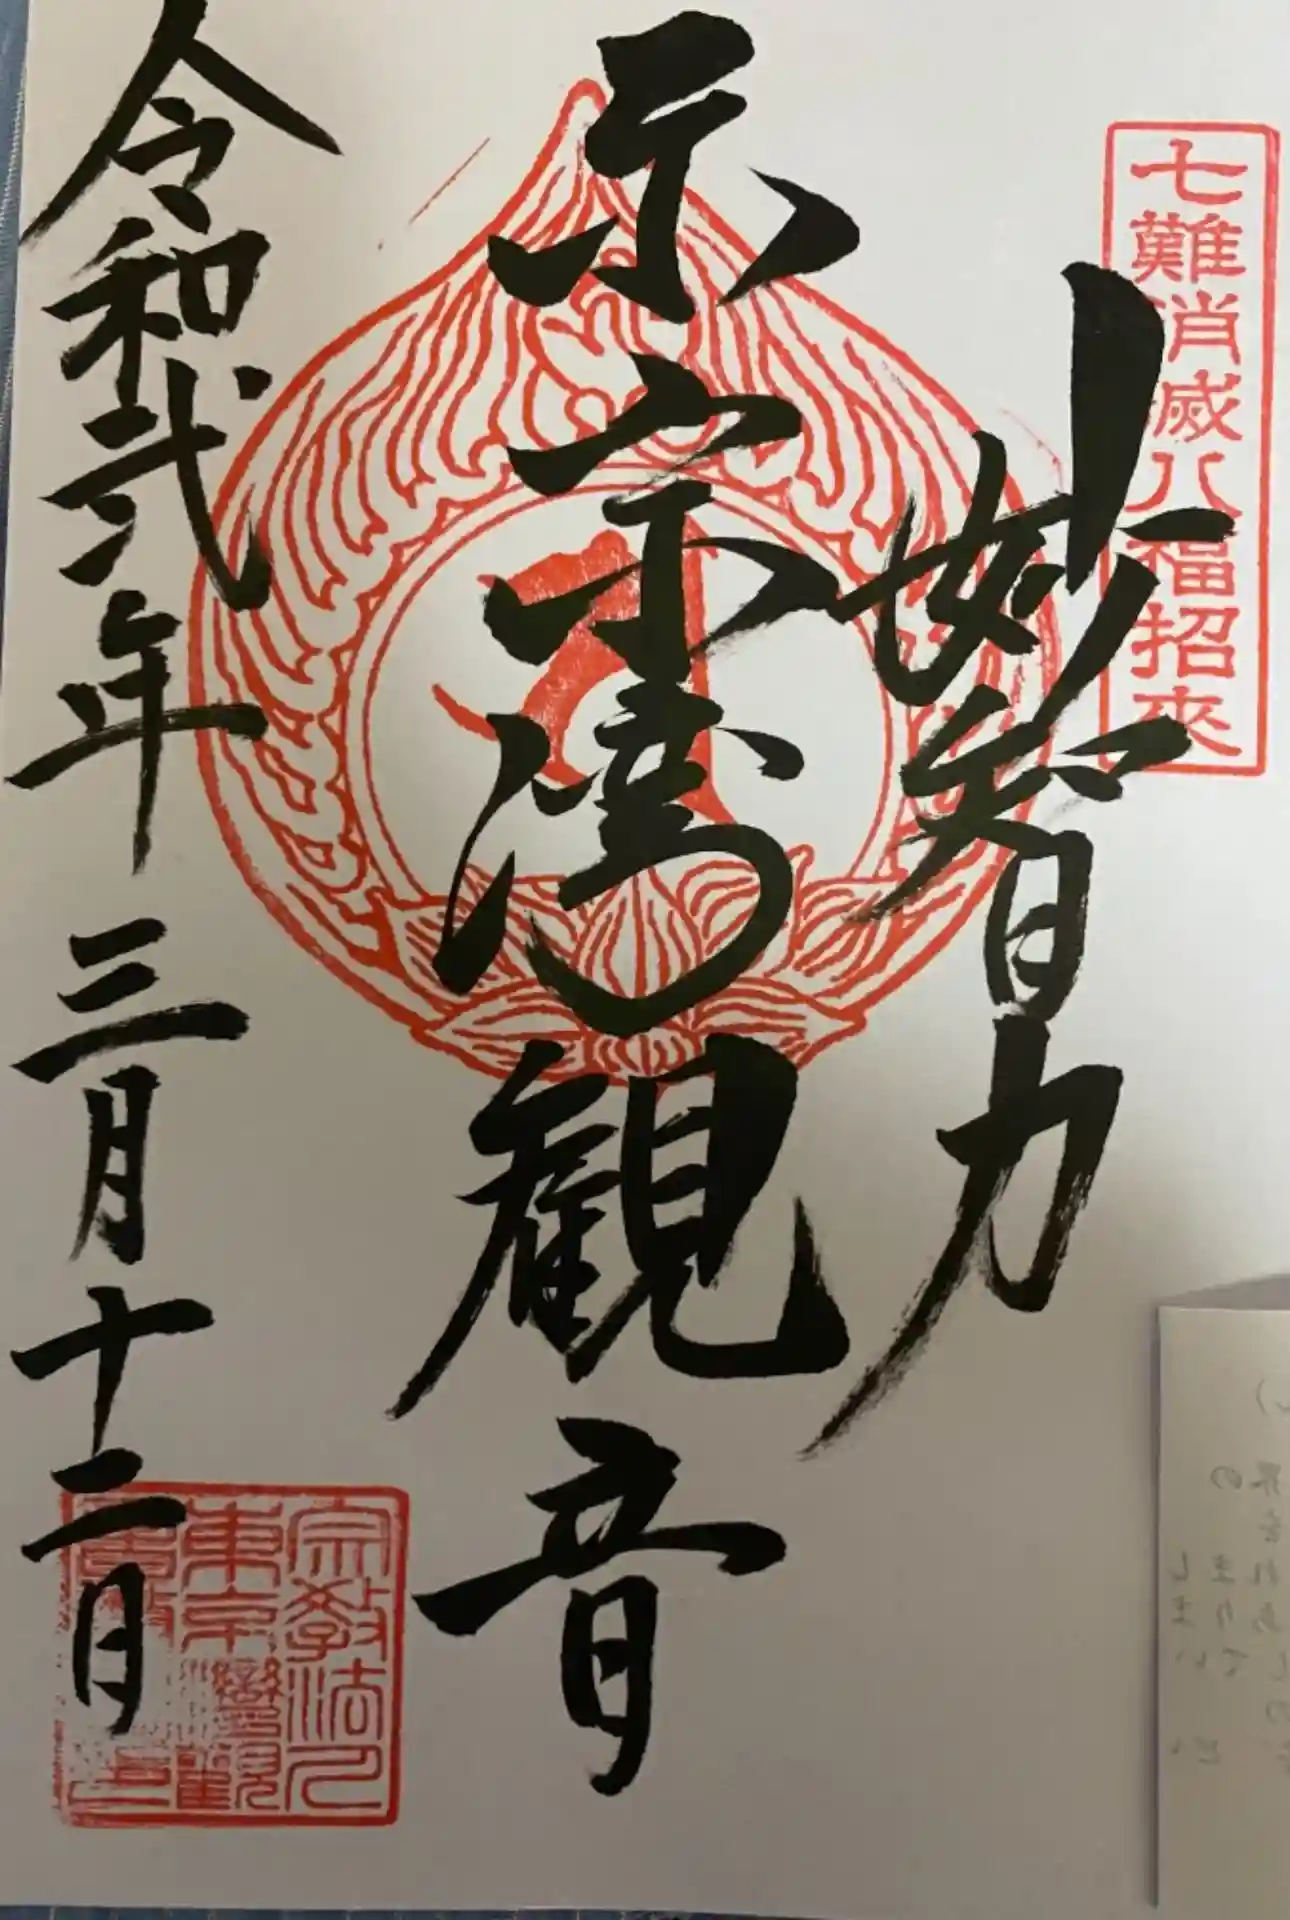 七難消滅八福招来
妙智力
东京湾観音
令和弐年 三月十二日
宗教法人
東京灣觀